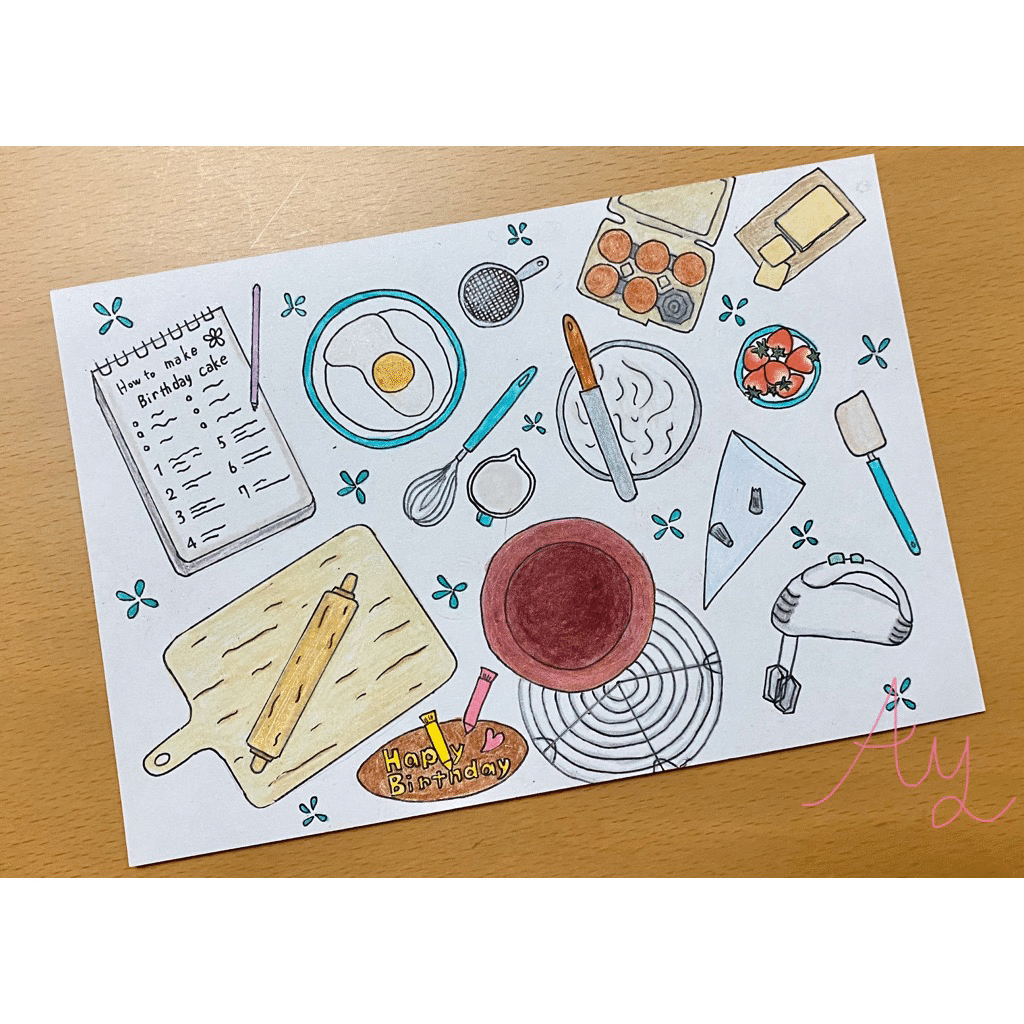 How to make
Birthday cake
5
1
6
2
7
3
4
Happy
Birthday
Ay